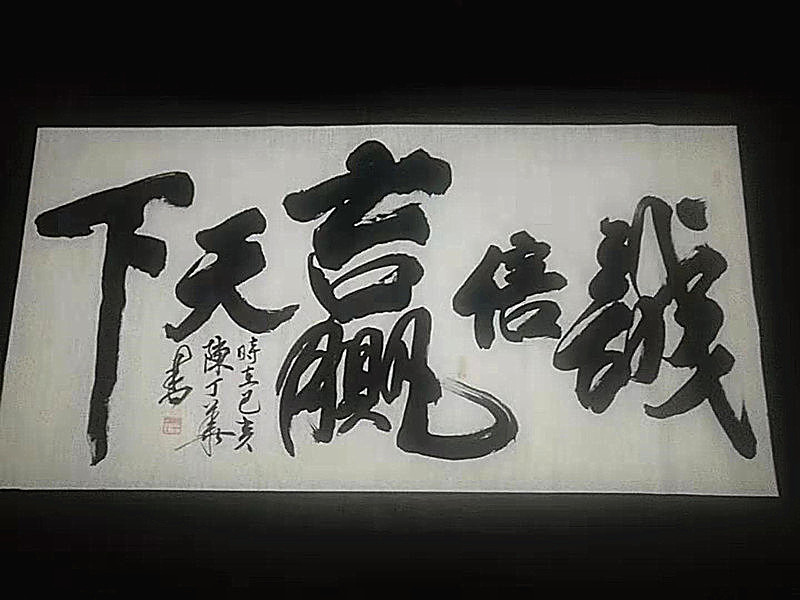 誠信贏天下
時在己亥
陳丁華
書